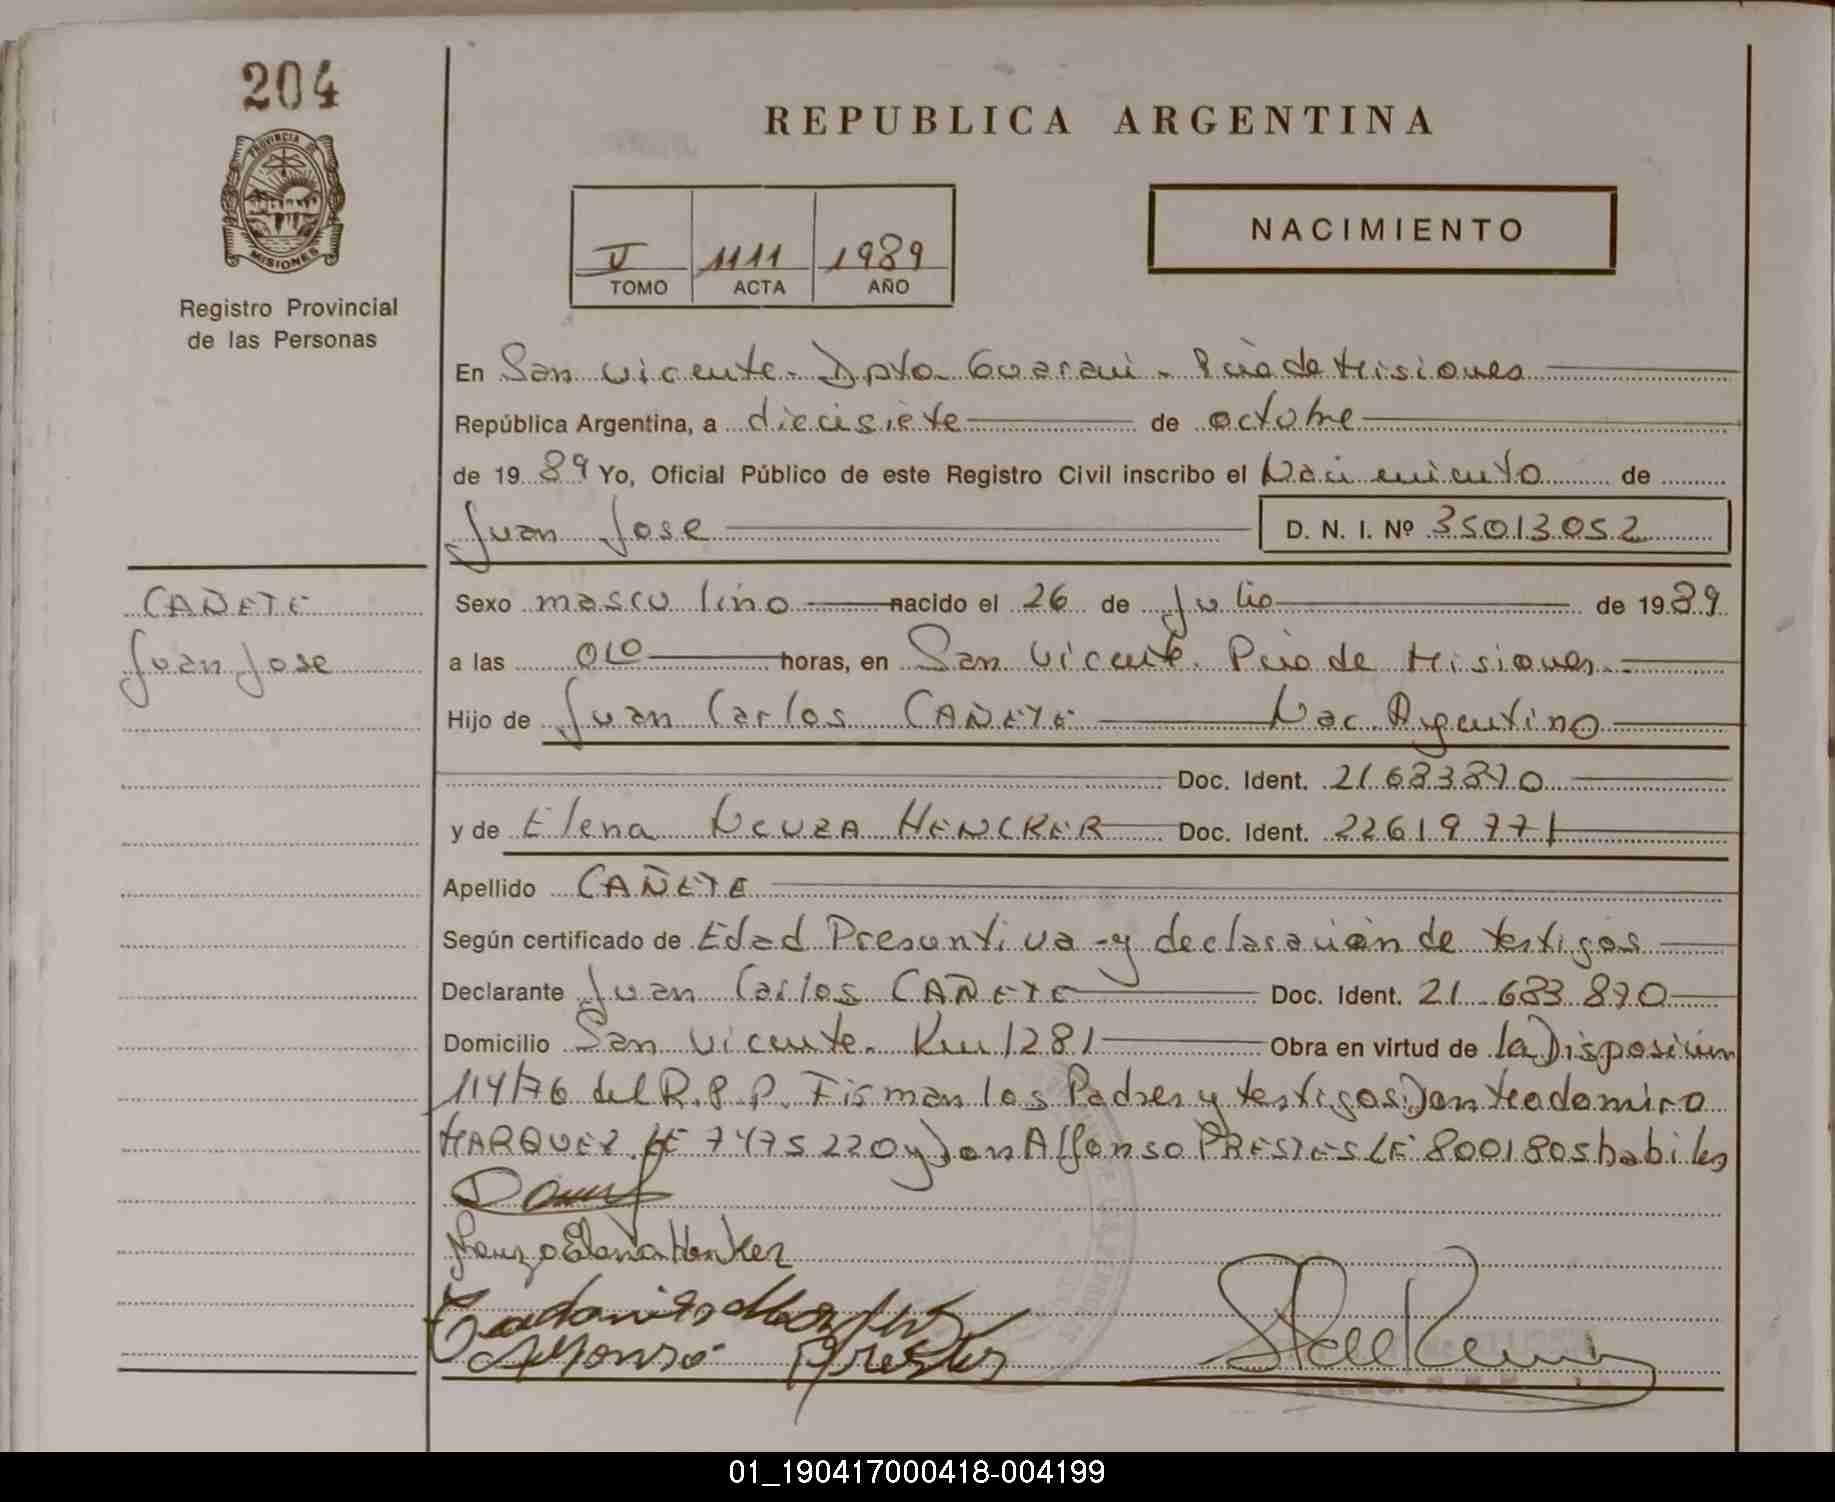 204
PROVINCIA DE
MISIONES
Registro Provincial
de las Personas
REPUBLICA ARGENTINA
NACIMIENTO
V 1111 1989
TOMO ACTA AÑO
En San Vicente - Dpto. Guarani - Pcia de Misiones
República Argentina, a diecisiete de octubre
de 1989 Yo, Oficial Público de este Registro Civil inscribo el Nacimiento de
Juan Jose D. N. I. Nº 35013052
CAÑETE
Juan Jose
Sexo masculino nacido el 26 de Julio de 1989
a las 010 horas, en San Vicente Pcia de Misiones
Hijo de Juan Carlos CAÑETE Nac. Argentino
Doc. Ident. 21.683870
y de Elena NEUZA HENCKER Doc. Ident. 22619771
Apellido CAÑETE
Según certificado de Edad Presuntiva - y declaración de testigos
Declarante Juan Carlos CAÑETE Doc. Ident. 21.683.870
Domicilio San Vicente - Km 1281 Obra en virtud de la Disposición
114/76 del R.P.P. Firman los Padres y testigos Don teodomiro
MARQUEZ LE 7475220 y Don Alfonso PRESTES LE 8001805 habiles
Neuza Elena Henker
Alfonso Prestes
01_190417000418-004199